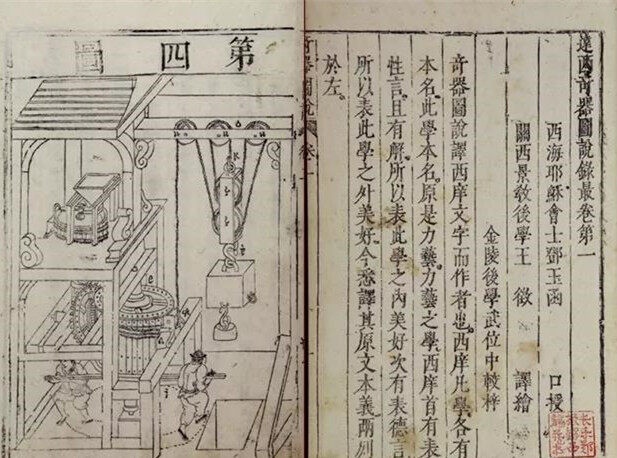 遠西竒器圖說錄最卷第一
西海耶穌會士鄧玉函 口授
關西景教後學王徵 譯繪
金陵後學武位中較梓
竒器圖說譯西庠文字而作者也。西庠凡學各有
本名。此學本名。原是力藝。力藝之學。西庠首有表
性言。且有解。所以表此學之內美好次有表德言
所以表此學之外美好今悉譯其原文本義兩列
於左。
竒器圖說 卷一
第四圖